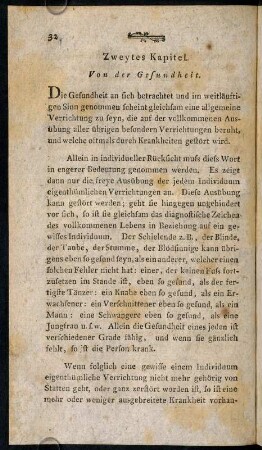 32
Zweytes Kapitel.
Von der Gesundheit.
Die Gesundheit an sich betrachtet und im weitläufti-
gen Sinn genommen scheint gleichsam eine allgemeine
Verrichtung zu seyn, die auf der vollkommenen Aus-
übung aller übrigen besondern Verrichtungen beruht,
und welche oftmals durch Krankheiten gestört wird.
Allein in individueller Rücksicht muss diess Wort
in engerer Bedeutung genommen werden. Es zeigt
dann nur die freye Ausübung der jedem Individuum
eigenthümlichen Verrichtungen an. Diese Ausübung
kann gestört werden; geht sie hingegen ungehindert
vor sich, so ist sie gleichsam das diagnostische Zeichen
des vollkommenen Lebens in Beziehung auf ein ge-
wisses Individuum. Der Schielende z. B., der Blinde,
der Taube, der Stumme, der Blödsinnige kann übri-
gens eben so gesund seyn, als ein anderer, welcher einen
solchen Fehler nicht hat: einer, der keinen Fuss fort-
zusetzen im Stande ist, eben so gesund, als der fer-
tigste Tänzer: ein Knabe eben so gesund, als ein Er-
wachsener: ein Verschnittener eben so gesund, als ein
Mann: eine Schwangere eben so gesund, als eine
Jungfrau u. s. w. Allein die Gesundheit eines jeden ist
verschiedener Grade fähig, und wenn sie gänzlich
fehlt, so ist die Person krank.
Wenn folglich eine gewisse einem Individuum
eigenthümliche Verrichtung nicht mehr gehörig von
Statten geht, oder ganz zerstört worden ist, so ist eine
mehr oder weniger ausgebreitete Krankheit vorhan-